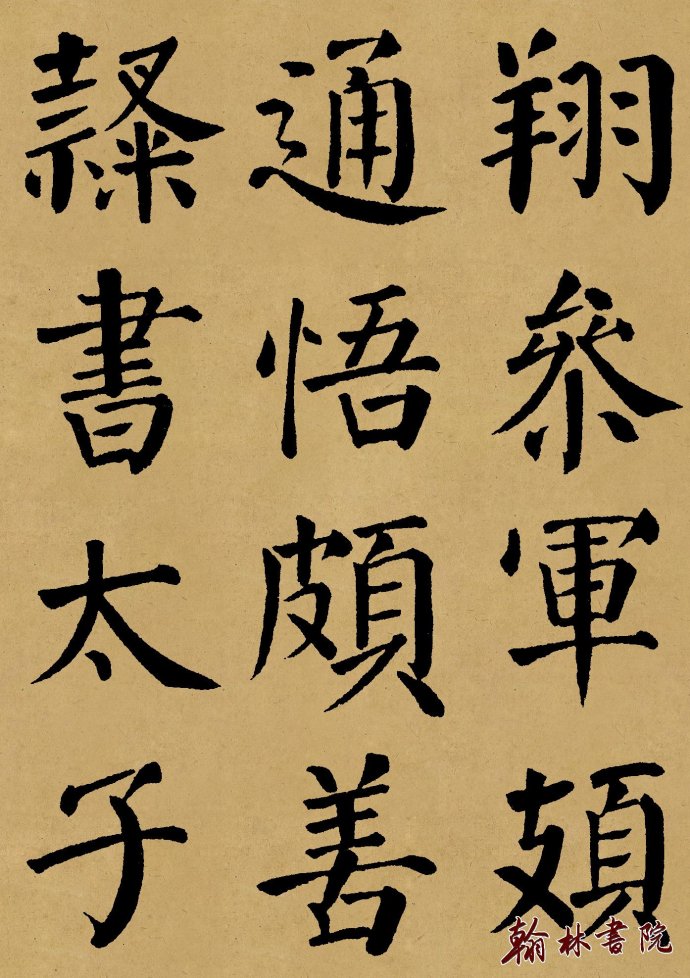 翔參軍頍
通悟頗善
隸書太子
翰林書院